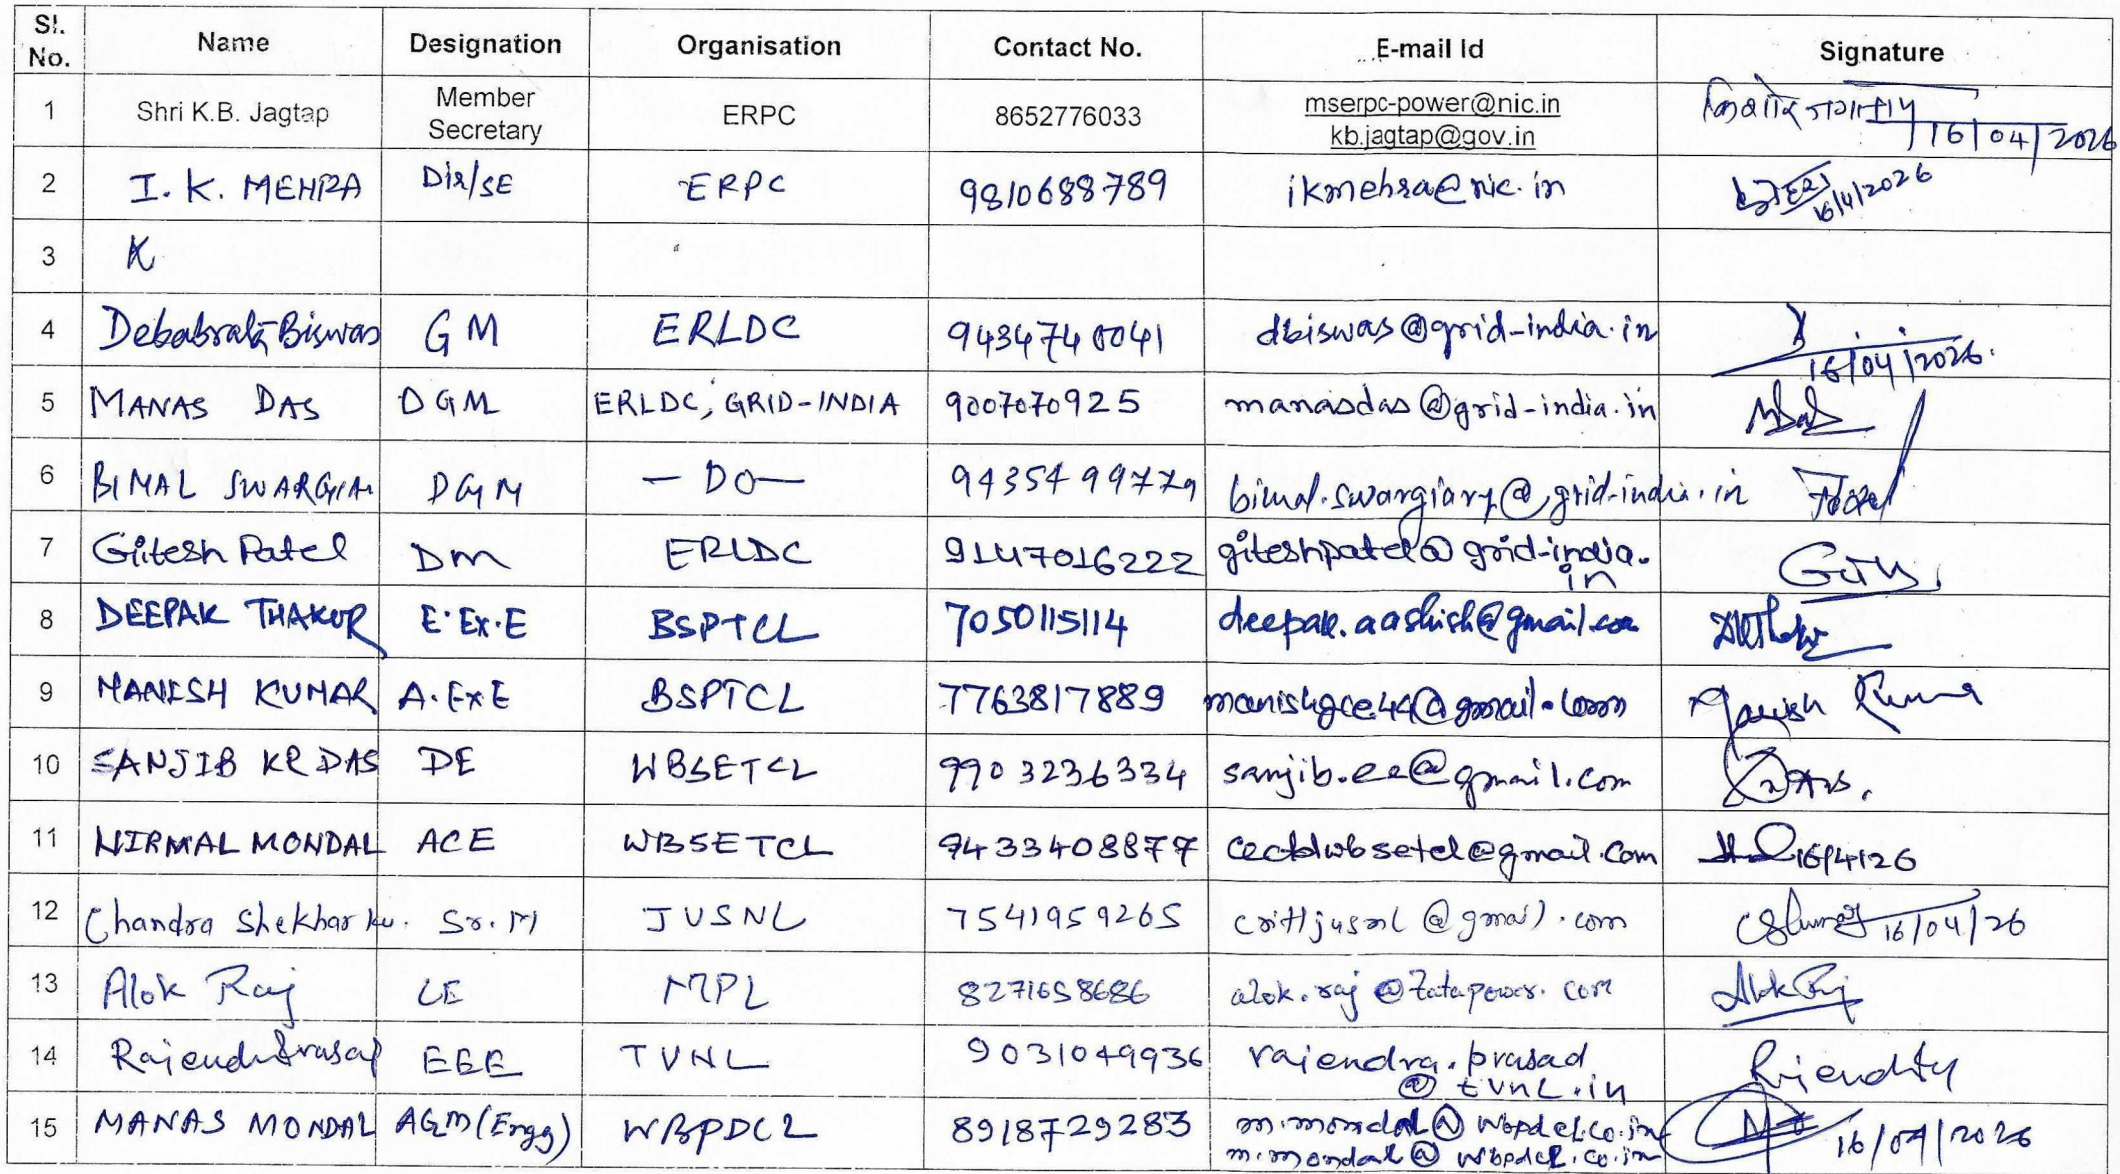 Sl. No. Name Designation Organisation Contact No. E-mail Id Signature
1 Shri K.B. Jagtap Member Secretary ERPC 8652776033 mserpc-power@nic.in kb.jagtap@gov.in 16/04/2026
2 I. K. MEHRA Dir/SE ERPC 9810688789 ikmehra@nic.in 16/4/2026
3 K
4 Debabrata Biswas GM ERLDC 9434740041 dbiswas@grid-india.in 16/04/2026.
5 MANAS DAS DGM ERLDC, GRID-INDIA 9007070925 manasdas@grid-india.in
6 BIMAL SWARGIARY DGM — DO — 9435499779 bimal.swargiary@grid-india.in
7 Gitesh Patel DM ERLDC 9147016222 giteshpatel@grid-india.in
8 DEEPAK THAKUR E.Ex.E BSPTCL 7050115114 deepak.aashish@gmail.com
9 MANISH KUMAR A.ExE BSPTCL 7763817889 manishgce44@gmail.com Manish Kumar
10 SANJIB KR DAS DE WBSETCL 9903236334 sanjib.ee@gmail.com
11 NIRMAL MONDAL ACE WBSETCL 9433408877 16/4/26
12 Chandra Shekhar Ku. Sr. M JUSNL 7541959265 critljusnl@gmail.com 16/04/26
13 Alok Raj LE MPL 8271658686 alok.raj@tatapower.com Alok Raj
14 Rajendra Prasad EEE TVNL 9031049936 rajendra.prasad@tvnl.in
15 MANAS MONDAL AGM (Engg) WBPDCL 8918729283 m.mondal@wbpdcl.co.in m.mondal@wbpdcl.co.in 16/04/2026